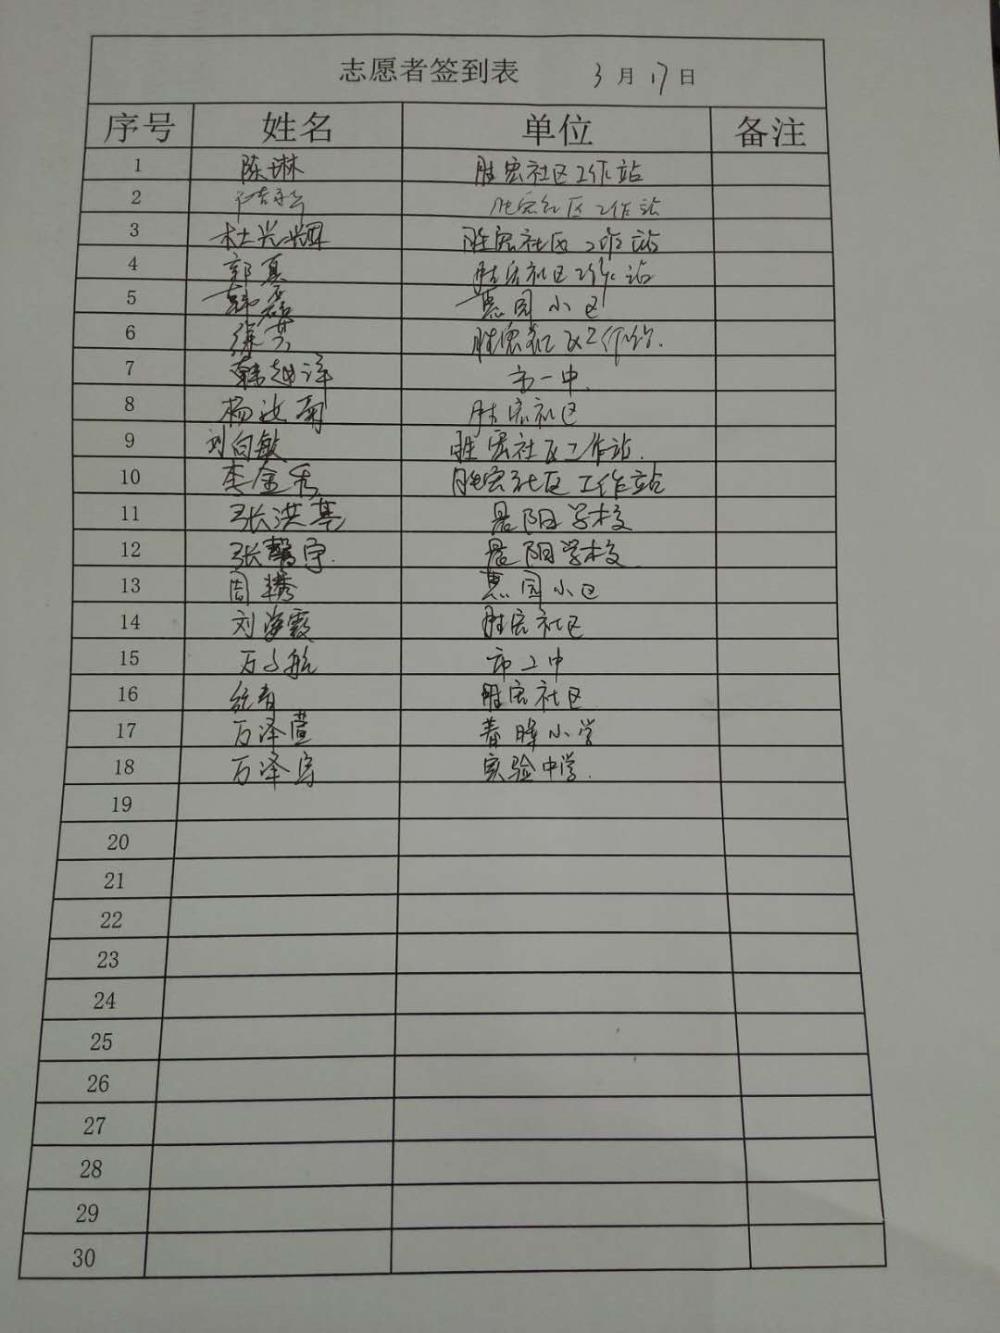 志愿者签到表 3月17日
序号 姓名 单位 备注
1 陈琳 胜宏社区工作站
2 胜宏社区工作站
3 杜兴辉 胜宏社区工作站
4 郭夏 胜宏社区工作站
5 韩磊 惠园小区
6 徐芸 胜宏社区工作站.
7 韩越洋 市一中.
8 杨汝南 胜宏社区
9 刘向敏 胜宏社区工作站.
10 李金秀 胜宏社区工作站
11 张洪基 晨阳学校
12 张馨宇. 晨阳学校
13 周琇 惠园小区
14 刘海霞 胜宏社区
15 万子航 市二中
16 胜宏社区
17 万泽萱 春晖小学
18 万泽宇 实验中学.
19
20
21
22
23
24
25
26
27
28
29
30